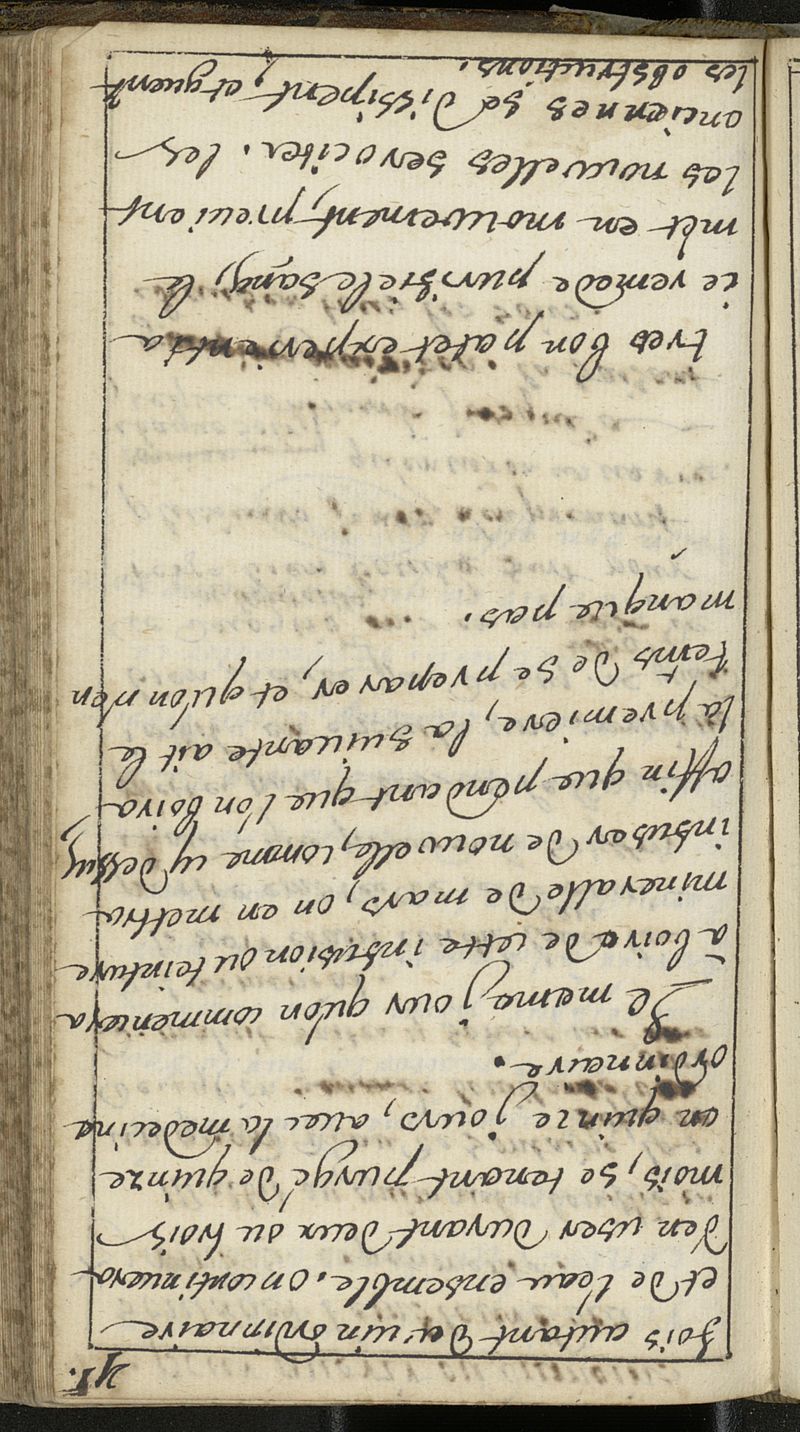 41.
fois autant de vin ordinnaire
et de l'eau ensemble. on continuera
d'en user durant deux ou trois
mois, se tenant purgé de quinze
en quinze jours, avec la medecine
ordinnaire.
Le mème jour qu'on commencera
à boire de cette infusion ou teinture
mineralle de mars, on en mettra
infuser de nouvelle, comme cy dessus,
affin que pendant que l'on boira
la premiere, la suivante ait le
tems de se preparer, et qu'on n'en
manque pas.
tres bon patet experientia
ce remede purifie le sang, le
met en mouvement, previent
les nouvelles . les
anciennes se dissipent, et guerit
les obstructions.